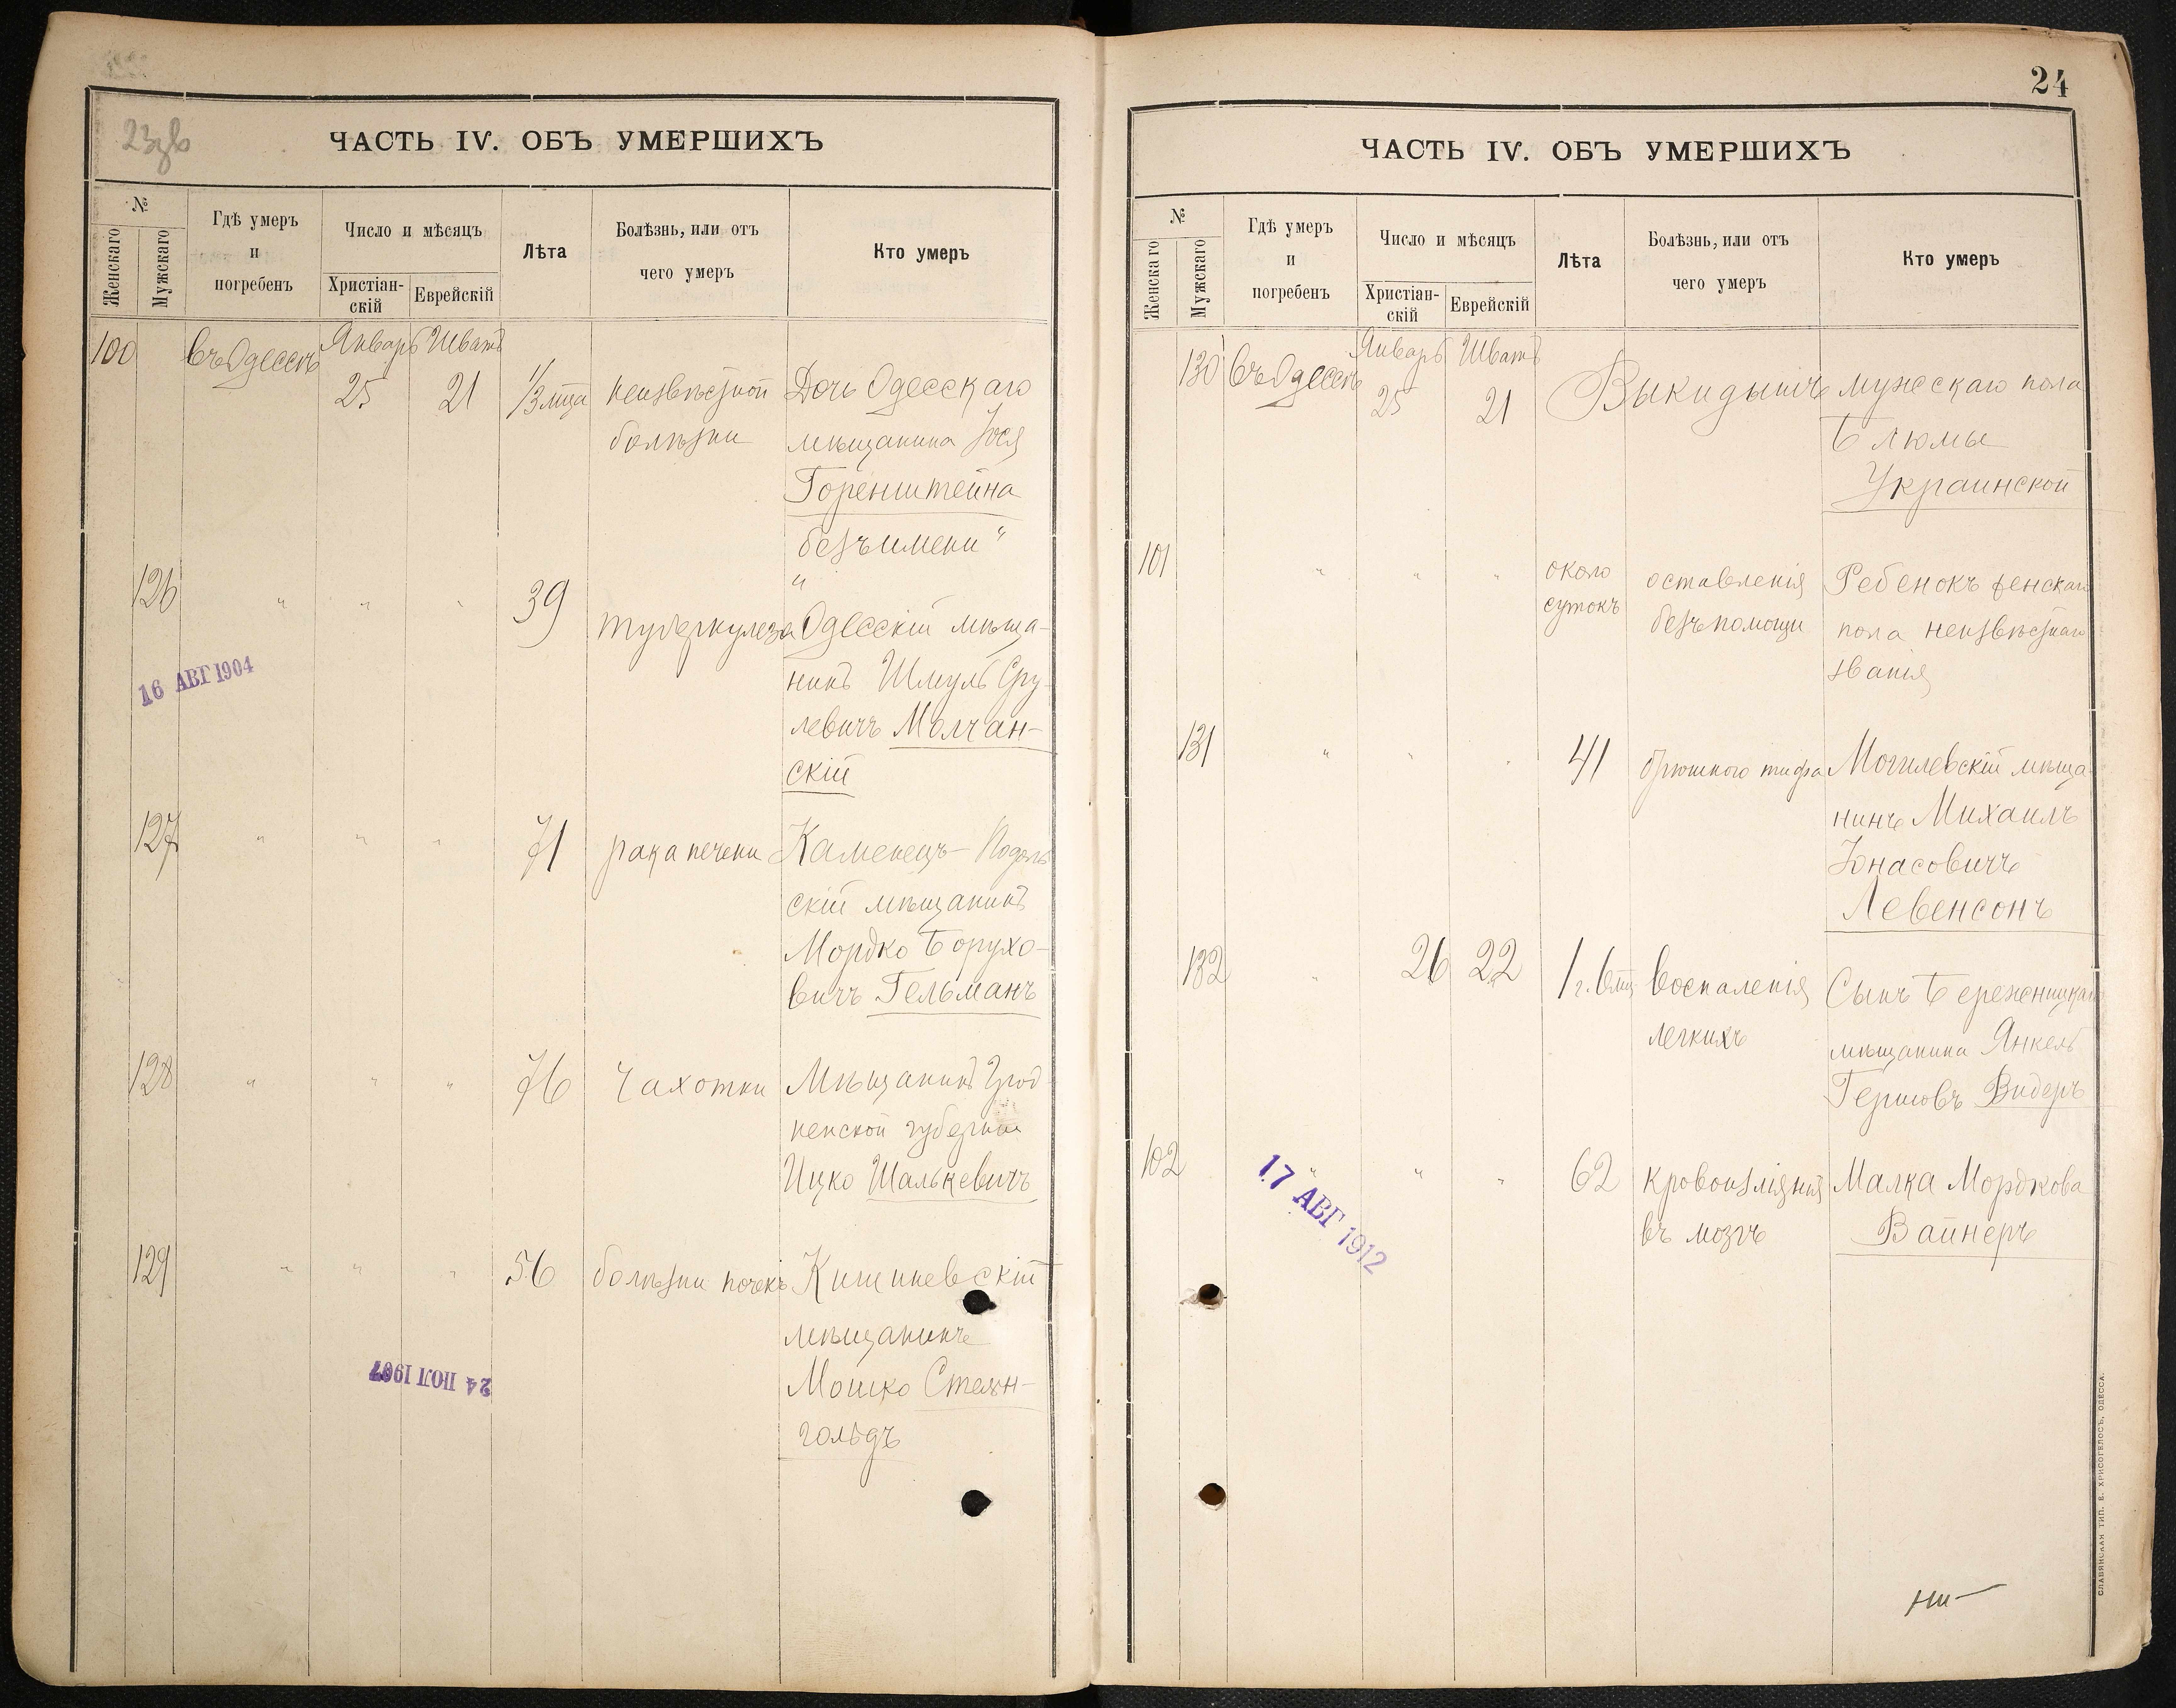 23зв
ЧАСТЬ IV. ОБЪ УМЕРШИХЪ
№
Женскаго
Мужскаго
Гдѣ умеръ
и
погребенъ
Число и мѣсяцъ
Христіан-
скій
Еврейскій
Лѣта
Болѣзнь, или отъ
чего умеръ
Кто умеръ
100 въ Одессѣ Январь Шватъ
25 21 1/3 мца неизвѣстной Дочь Одесскаго
болѣзни мѣщанина Іося
Горенштейна
безъ имени "
126 " " " 39 "
туберкулеза Одесскій мѣща-
нинъ Шмуль Сру-
левичъ Молчан-
скій
16 АВГ 1904
127 " " " 71 рака печени Каменецъ-Подоль
скій мѣщанинъ
Мордко Борухо-
вичъ Гельманъ
128 " " " 76 Чахотки Мѣщанинъ Грод
ненской губерніи
Ицко Шалькевичъ
129 " " " 56 болѣзни почекъ Кишиневскій
мѣщанинъ
Мошко Стейн-
гольдъ
24 ІЮЛ 1907
24
ЧАСТЬ IV. ОБЪ УМЕРШИХЪ
№
Женскаго
Мужскаго
Гдѣ умеръ
и
погребенъ
Число и мѣсяцъ
Христіан-
скій
Еврейскій
Лѣта
Болѣзнь, или отъ
чего умеръ
Кто умеръ
130 въ Одессѣ Январь Шватъ
25 21 Выкидышъ мужескаго пола
Блюмы
Украинской
101 " " " около оставленія Ребенокъ женскаго
сутокъ безъ помощи пола неизвѣстнаго
званія
131 " " " 41 брюшного тифа Могилевскій мѣща-
нинъ Михаилъ
Іонасовичъ
Левенсонъ
132 " 26 22 1 г. 6 мц воспаленія Сынъ Бережницкаго
легкихъ мѣщанина Янкель
Гершовъ Видеръ
102 " " " 62 Кровоизліянія Малка Мордкова
въ мозгъ Вайнеръ
17 АВГ 1912
СЛАВЯНСКАЯ ТИП. Е. ХРИСОГЕЛОСЪ, ОДЕССА.